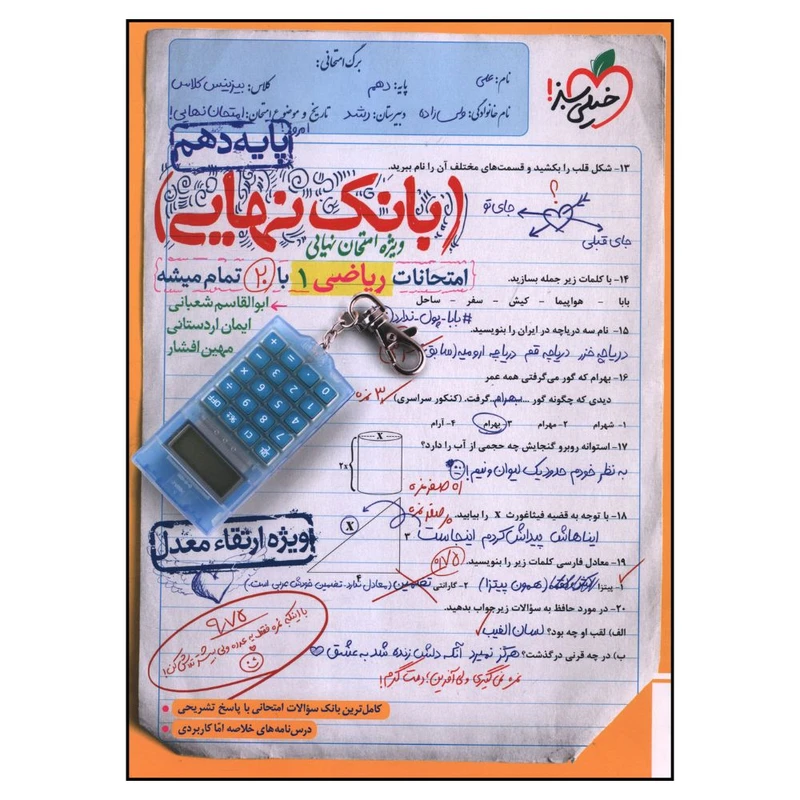 برگ امتحانی:
نام: علی
پایه: دهم
کلاس: بیزنیس کلاس
نام خانوادگی:
دبیرستان: رشد
تاریخ و موضوع امتحان: امتحان نهایی!
خیلی سبز!
پایه دهم
(بانک نهایی)
ویژه امتحان نهایی
امتحانات ریاضی ۱ با ۲۰ تمام میشه
ابوالقاسم شعبانی
ایمان اردستانی
مهین افشار
۱۳- شکل قلب را بکشید و قسمت‌های مختلف آن را نام ببرید.
؟
جای تو
جای قبلی
۱۴- با کلمات زیر جمله بسازید.
بابا - هواپیما - کیش - سفر - ساحل
#بابا_پول_ندارد
۱۵- نام سه دریاچه در ایران را بنویسید.
دریاچه خزر دریاچه قم دریاچه ارومیه (سابق
۱۶- بهرام که گور می‌گرفتی همه عمر
دیدی که چگونه گور ...بهرام... گرفت. (کنکور سراسری)
۱- شهرام ۲- مهرام ۳ بهرام ۴- آرام
۱۷- استوانه روبرو گنجایش چه حجمی از آب را دارد؟
x
۲x
به نظر خودم حدود یک لیوان و نیم!
۱۸- با توجه به قضیه فیثاغورث x را بیابید.
x
۳
۴
ایناهاش پیداش کردم اینجاست
۱۹- معادل فارسی کلمات زیر را بنویسید.
۰/۷۵
۱- پیتزا: (همون پیتزا) ۲- گارانتی تضمین (معادل ندارد. تضمین خودش عربی است.)
۲۰- در مورد حافظ به سؤالات زیر جواب بدهید.
الف) لقب او چه بود؟ لسان الغیب
ب) در چه قرنی درگذشت؟ هرگز نمیرد آنکه دلش زنده شد به عشق
نمره نمی‌گیری ولی آفرین! دمت گرم!
ویژه ارتقاء معدل
۹/۷۵
کامل‌ترین بانک سؤالات امتحانی با پاسخ تشریحی
درس‌نامه‌های خلاصه امّا کاربردی